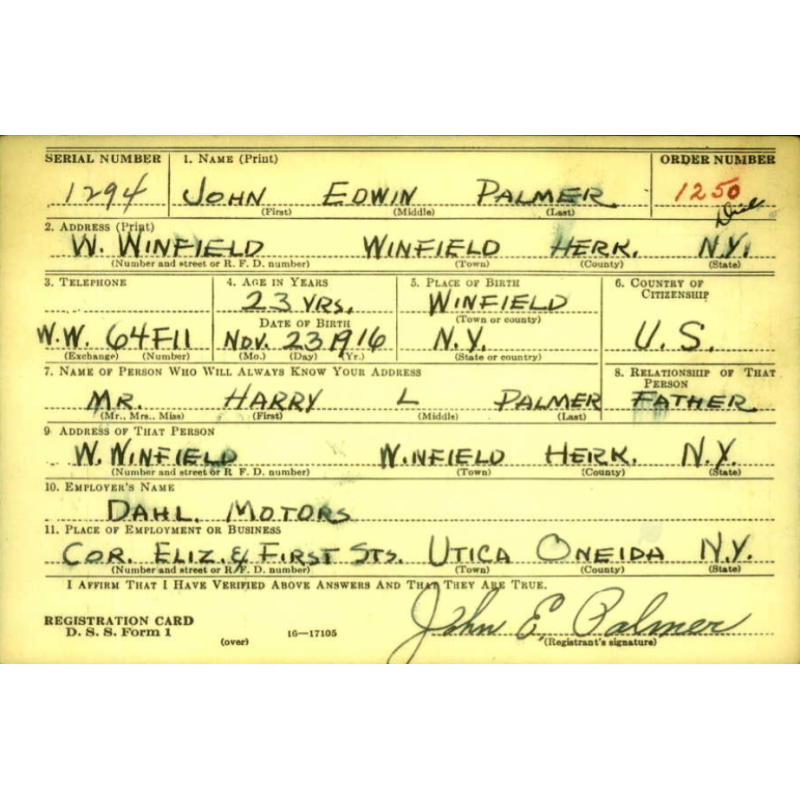 SERIAL NUMBER 1. NAME (Print) ORDER NUMBER
1294 JOHN EDWIN PALMER 1250
(First) (Middle) (Last)
2. ADDRESS (Print)
W. WINFIELD WINFIELD HERK. N.Y.
(Number and street or R. F. D. number) (Town) (County) (State)
3. TELEPHONE 4. AGE IN YEARS 5. PLACE OF BIRTH 6. COUNTRY OF CITIZENSHIP
23 YRS. WINFIELD
DATE OF BIRTH (Town or county)
W.W. 64F11 NOV. 23 1916 N.Y. U.S.
(Exchange) (Number) (Mo.) (Day) (Yr.) (State or country)
7. NAME OF PERSON WHO WILL ALWAYS KNOW YOUR ADDRESS 8. RELATIONSHIP OF THAT PERSON
MR. HARRY L PALMER FATHER
(Mr., Mrs., Miss) (First) (Middle) (Last)
9. ADDRESS OF THAT PERSON
W. WINFIELD WINFIELD HERK. N.Y.
(Number and street or R. F. D. number) (Town) (County) (State)
10. EMPLOYER'S NAME
DAHL MOTORS
11. PLACE OF EMPLOYMENT OR BUSINESS
COR. ELIZ. & FIRST STS. UTICA ONEIDA N.Y.
(Number and street or R. F. D. number) (Town) (County) (State)
I AFFIRM THAT I HAVE VERIFIED ABOVE ANSWERS AND THAT THEY ARE TRUE.
REGISTRATION CARD John E. Palmer
D. S. S. Form 1 (over) 16—17105 (Registrant's signature)